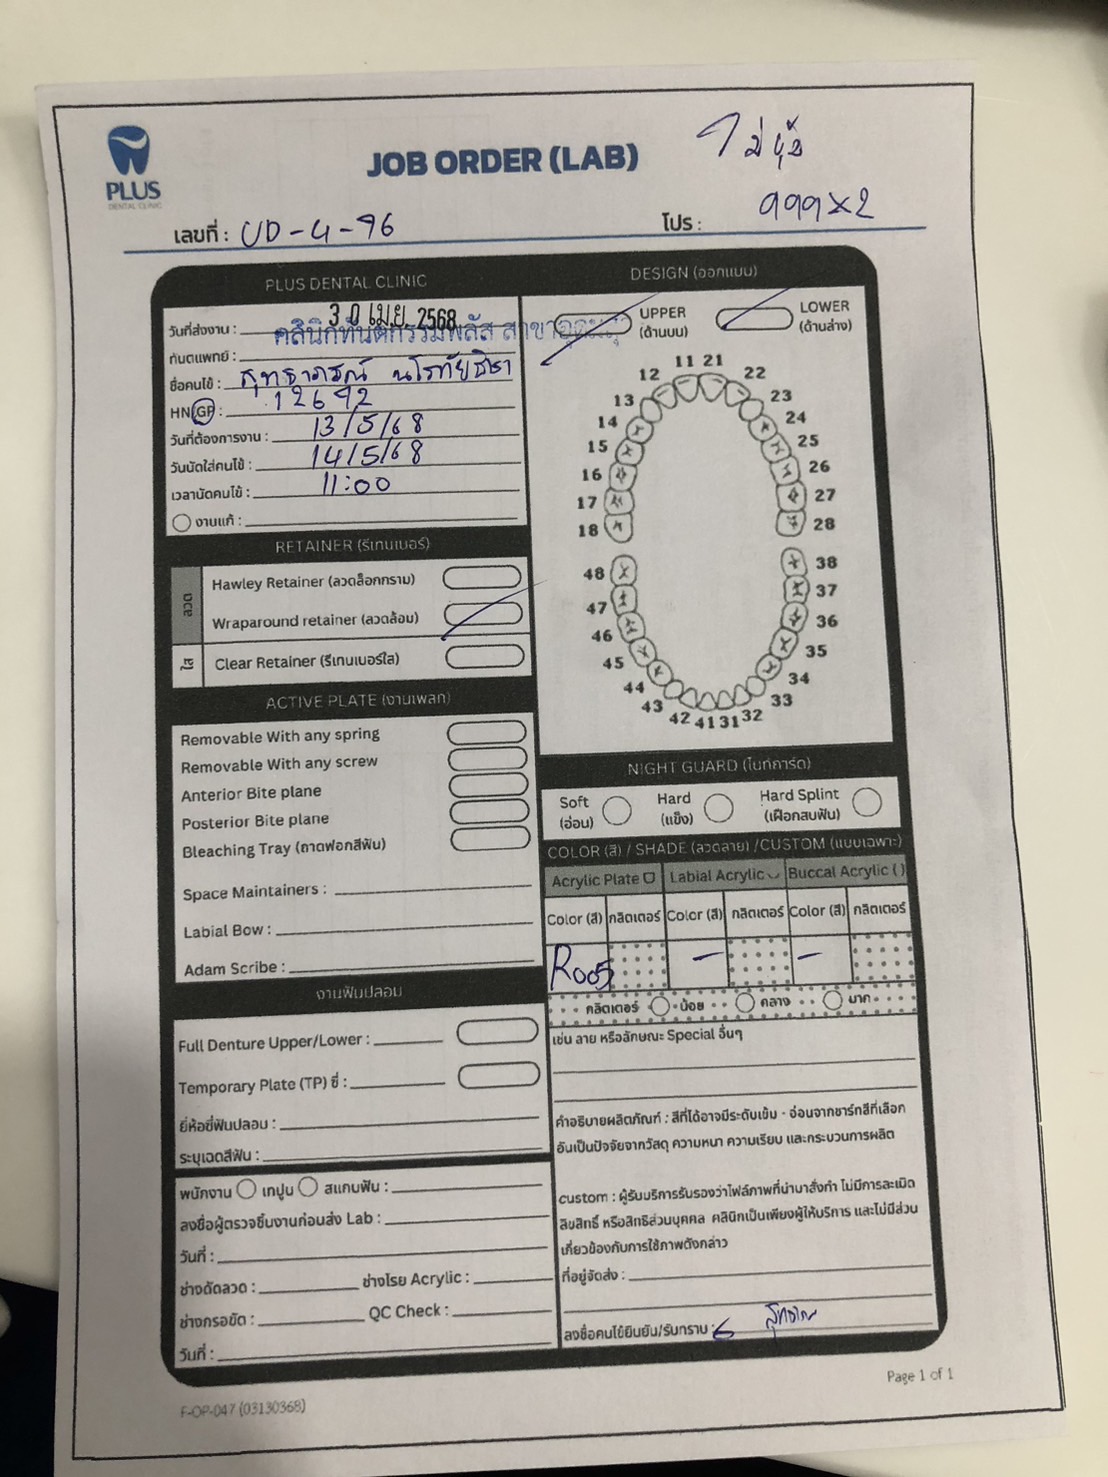 PLUS
DENTAL CLINIC
JOB ORDER (LAB)
เลขที่ : UD-4-96
โปร : 999x2
PLUS DENTAL CLINIC
วันที่ส่งงาน : 30 เม.ย. 2568
คลินิกทันตกรรมพลัส สาขาอุดมสุข
ทันตแพทย์ :
ชื่อคนไข้ :
HN/GP : 12692
วันที่ต้องการงาน : 13/5/68
วันนัดใส่คนไข้ : 14/5/68
เวลานัดคนไข้ : 11:00
งานแก้ :
DESIGN (ออกแบบ)
UPPER (ด้านบน)
LOWER (ด้านล่าง)
11 21
12 22
13 23
14 24
15 25
16 26
17 27
18 28
48 38
47 37
46 36
45 35
44 34
43 33
42 41 31 32
RETAINER (รีเทนเนอร์)
ลวด
Hawley Retainer (ลวดล็อกกราม)
Wraparound retainer (ลวดล้อม)
ใส
Clear Retainer (รีเทนเนอร์ใส)
ACTIVE PLATE (งานเพลท)
Removable With any spring
Removable With any screw
Anterior Bite plane
Posterior Bite plane
Bleaching Tray (ถาดฟอกสีฟัน)
Space Maintainers :
Labial Bow :
Adam Scribe :
งานฟันปลอม
Full Denture Upper/Lower :
Temporary Plate (TP) ซี่ :
ยี่ห้อซี่ฟันปลอม :
ระบุเฉดสีฟัน :
พนักงาน เทปูน สแกนฟัน :
ลงชื่อผู้ตรวจชิ้นงานก่อนส่ง Lab :
วันที่ :
ช่างดัดลวด : ช่างโรย Acrylic :
ช่างกรอขัด : QC Check :
วันที่ :
NIGHT GUARD (ไนท์การ์ด)
Soft (อ่อน)
Hard (แข็ง)
Hard Splint (เฝือกสบฟัน)
COLOR (สี) / SHADE (ลวดลาย) /CUSTOM (แบบเฉพาะ)
Acrylic Plate Labial Acrylic Buccal Acrylic ( )
Color (สี) กลิตเตอร์ Color (สี) กลิตเตอร์ Color (สี) กลิตเตอร์
R005 - -
กลิตเตอร์ น้อย กลาง มาก
เช่น ลาย หรือลักษณะ Special อื่นๆ
คำอธิบายผลิตภัณฑ์ : สีที่ได้อาจมีระดับเข้ม - อ่อนจากชาร์ทสีที่เลือก
อันเป็นปัจจัยจากวัสดุ ความหนา ความเรียบ และกระบวนการผลิต
custom : ผู้รับบริการรับรองว่าไฟล์ภาพที่นำมาสั่งทำ ไม่มีการละเมิด
ลิขสิทธิ์ หรือสิทธิส่วนบุคคล คลินิกเป็นเพียงผู้ให้บริการ และไม่มีส่วน
เกี่ยวข้องกับการใช้ภาพดังกล่าว
ที่อยู่จัดส่ง :
ลงชื่อคนไข้ยืนยัน/รับทราบ :
Page 1 of 1
F-OP-047 (03130368)